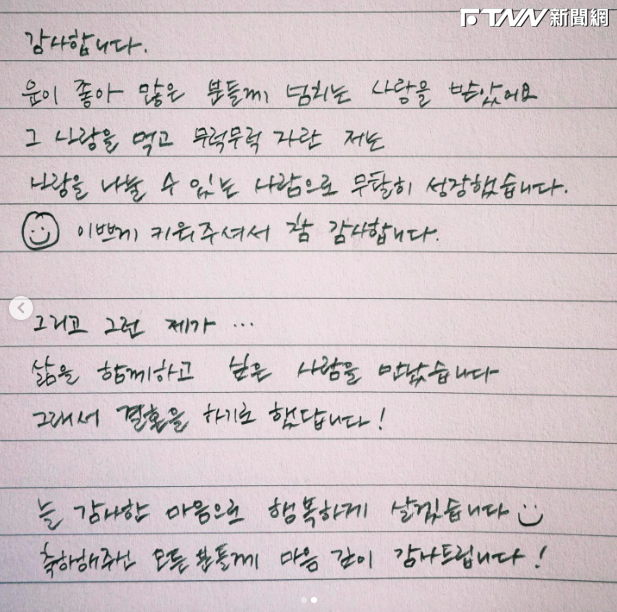 TNN 新聞網
감사합니다.
운이 좋아 많은 분들께 넘치는 사랑을 받았어요
그 사랑을 먹고 무럭무럭 자란 저는
사랑을 나눌 수 있는 사람으로 무탈히 성장했습니다.
이쁘게 키워주셔서 참 감사합니다.
그리고 그런 제가 ...
삶을 함께하고 싶은 사람을 만났습니다
그래서 결혼을 하기로 했답니다!
늘 감사한 마음으로 행복하게 살겠습니다
축하해주신 모든 분들께 마음 깊이 감사드립니다!